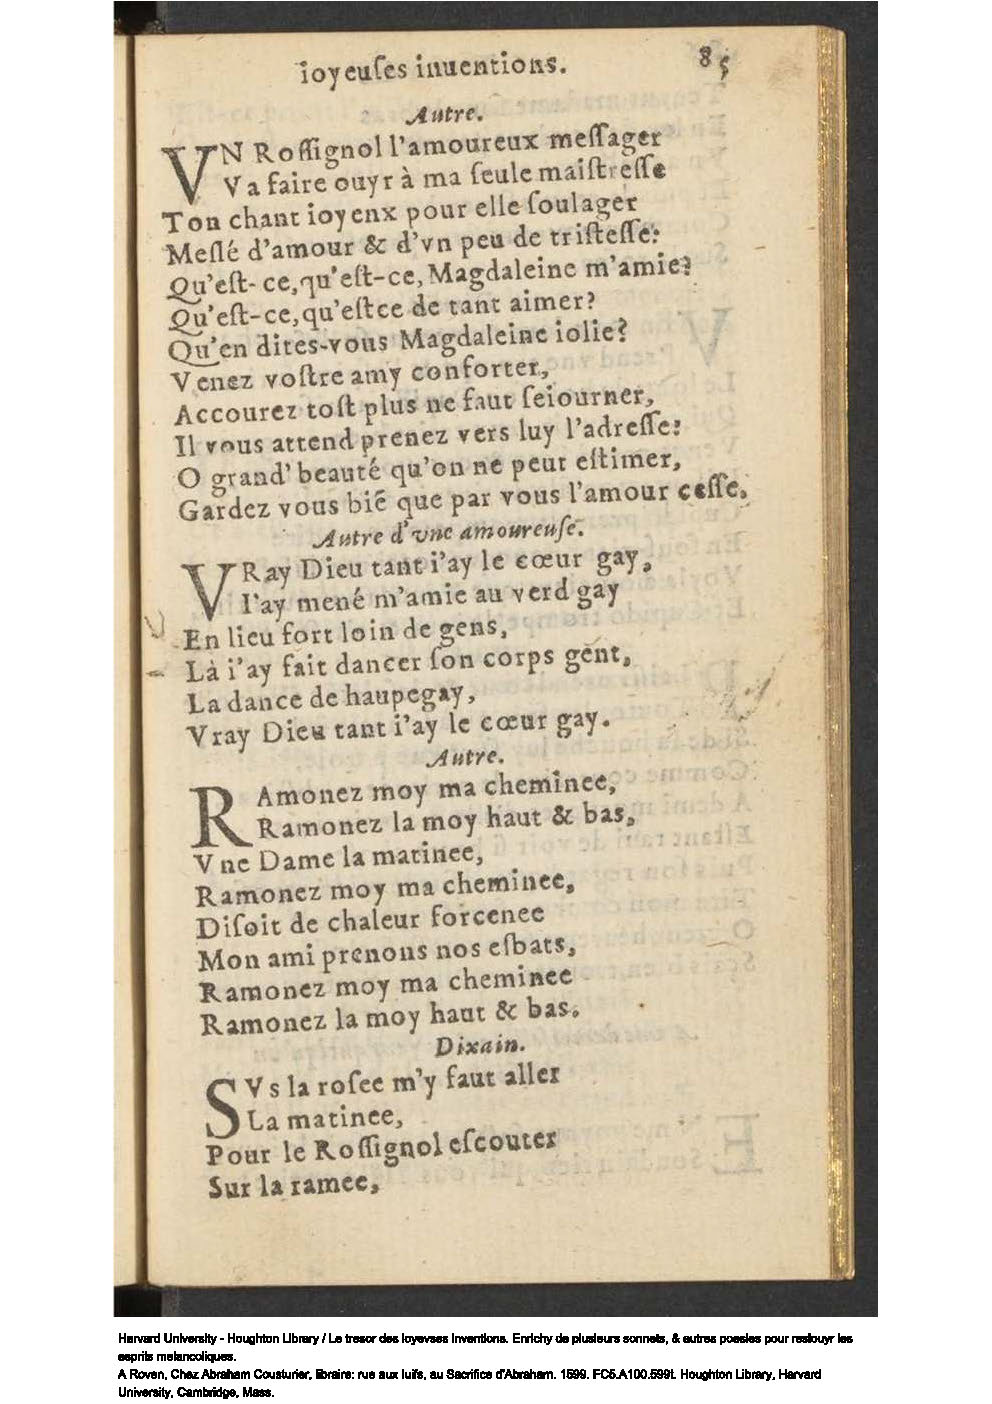 ioyeuſes inuentions. 85
Autre.
VN Roſſignol l'amoureux meſſager
Va faire ouyr à ma ſeule maiſtreſſe
Ton chant ioyenx pour elle ſoulager
Meſlé d'amour & d'vn peu de triſteſſe:
Qu'eſt-ce, qu'eſt-ce, Magdaleine m'amie?
Qu'eſt-ce, qu'eſtce de tant aimer?
Qu'en dites-vous Magdaleine iolie?
Venez voſtre amy conforter,
Accourez toſt plus ne faut ſeiourner,
Il vous attend prenez vers luy l'adreſſe:
O grand' beauté qu'on ne peut eſtimer,
Gardez vous biē que par vous l'amour ceſſe.
Autre d'vne amoureuſe.
VRay Dieu tant i'ay le cœur gay,
I'ay mené m'amie au verd gay
En lieu fort loin de gens,
Là i'ay fait dancer ſon corps gent,
La dance de haupegay,
Vray Dieu tant i'ay le cœur gay.
Autre.
RAmonez moy ma cheminee,
Ramonez la moy haut & bas,
Vne Dame la matinee,
Ramonez moy ma cheminee,
Diſoit de chaleur forcenee
Mon ami prenons nos eſbats,
Ramonez moy ma cheminee
Ramonez la moy haut & bas.
Dixain.
SVs la roſee m'y faut aller
La matinee,
Pour le Roſſignol eſcouter
Sur la ramee,
Harvard University - Houghton Library / Le tresor des ioyevses inventions. Enrichy de plusieurs sonnets, & autres poesies pour resiouyr les
esprits melancoliques.
A Roven, Chez Abraham Cousturier, libraire: rue aux Iuifs, au Sacrifice d'Abraham. 1599. FC5.A100.599t. Houghton Library, Harvard
University, Cambridge, Mass.